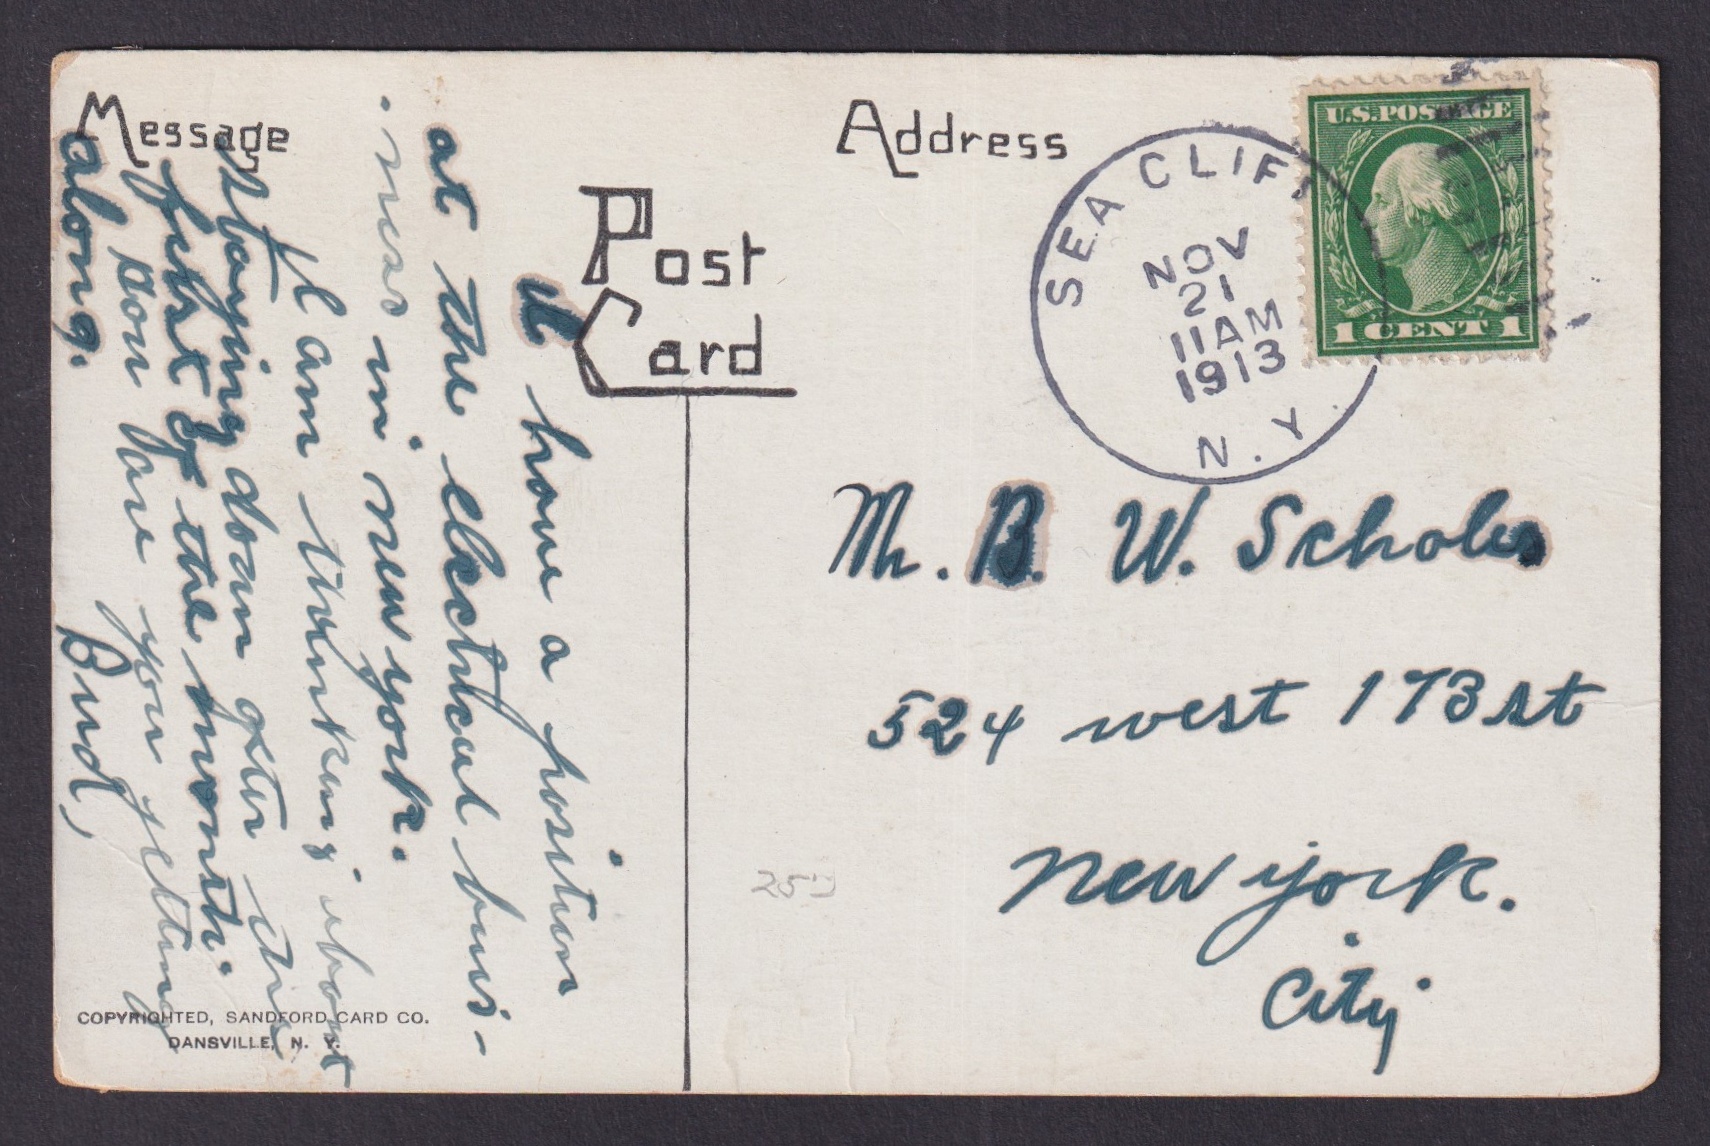 Message
Address
Post
Card
SEA CLIFF
N. Y.
NOV
21
11AM
1913
U.S. POSTAGE
1 CENT 1
I have a position
at the electrical busi-
ness in new york.
I am thinking about
staying down after the
first of the month.
How are you getting
along. Bud,
Mr. B. W. Scholes
524 west 173 st
New york.
City
25
COPYRIGHTED, SANDFORD CARD CO.
DANSVILLE, N. Y.